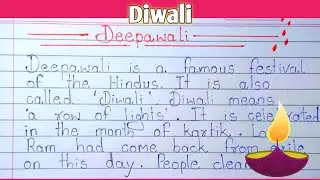 Diwali
Deepawali
Deepawali is a famous festival
of the, Hindus. It is also
called 'Diwali'. Diwali means
'a row of lights'. It is celebrated
in the month of kartik.
Ram had come back from
on this day. People